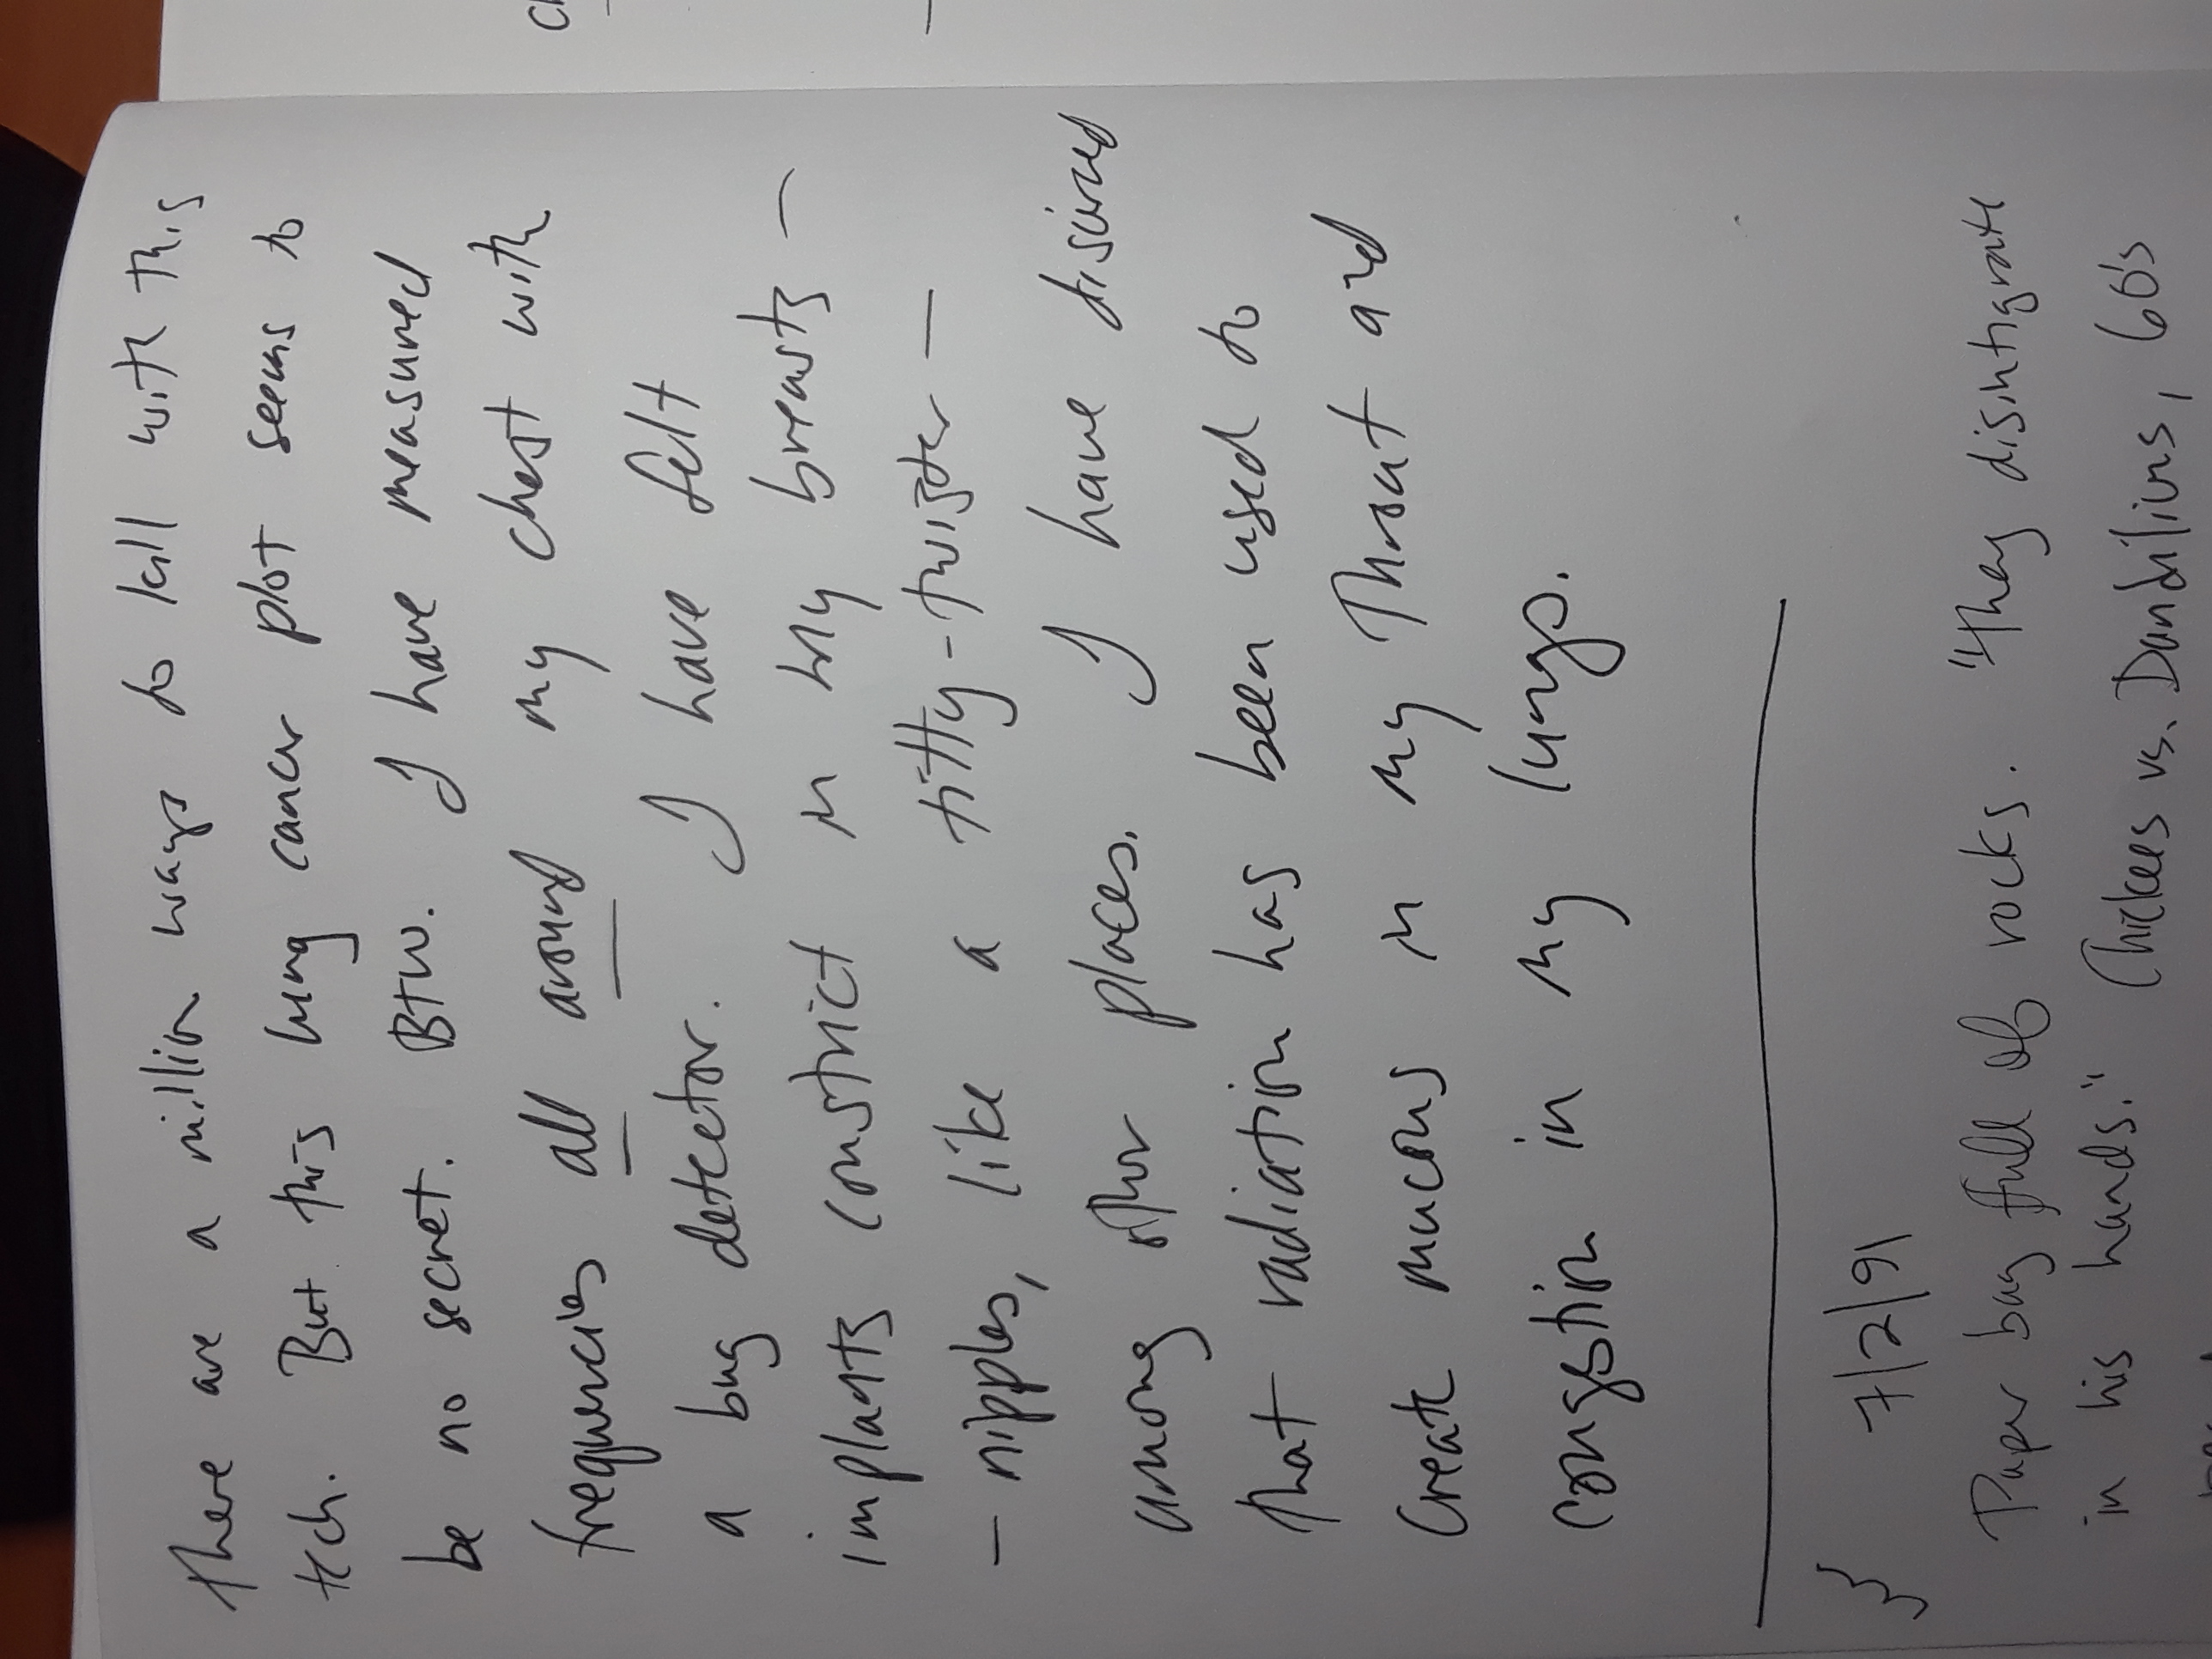 There are a million ways to kill with this
tch. But this lung cancer plot seems to
be no secret. BTW. I have measured
frequencies all around my chest with
a bug detector. I have felt
implants constrict in my breasts –
– nipples, like a titty-twister –
among other places. I have discured
that radiation has been used to
create mucous in my throat and
congestion in my lungs.
} 7/2/91
Paper bag full of rocks. "They disintigrate
in his hands." (Chickees vs. Dandilions, 60's